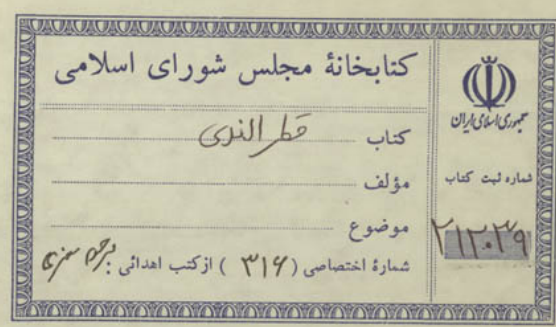 کتابخانهٔ مجلس شورای اسلامی
کتاب قطر الندی
مؤلف
موضوع
شمارهٔ اختصاصی ( ۳۱۶ ) از کتب اهدائی :
جمهوری اسلامی ایران
شماره ثبت کتاب
۲۱۲۰۳۹